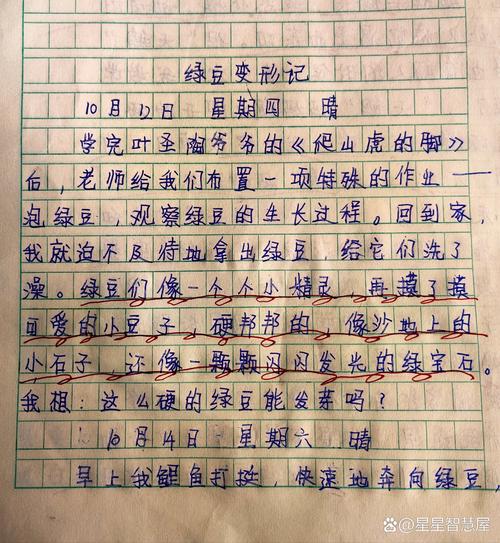 绿豆变形记
10月12日 星期四 晴
学完叶圣陶爷爷的《爬山虎的脚》
后，老师给我们布置一项特殊的作业——
泡绿豆，观察绿豆的生长过程。回到家，
我就迫不及待地拿出绿豆，给它们洗了
澡。绿豆们像一个个小精灵，再摸了摸
可爱的小豆子，硬邦邦的，像沙地上的
小石子，还像一颗颗闪闪发光的绿宝石。
我想：这么硬的绿豆能发芽吗？
10月14日 星期六 晴
早上我鲤鱼打挺，快速地奔向绿豆，
@星星智慧屋